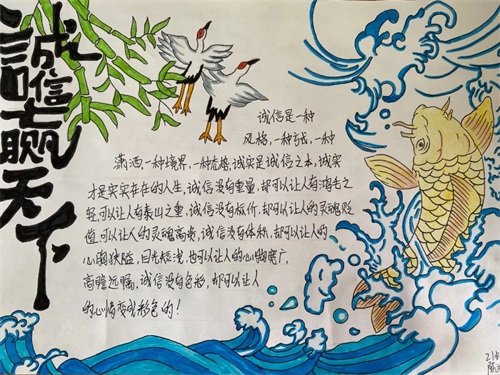 誠信赢天下
诚信是一种
风格,一种一种
潇洒,一种境界,一种资格,诚实是诚信之本,诚实
才是实实在在的人生,诚信没有重量,却可以让人有鸿毛之
轻,可以让人有泰山之重,诚信没有标价,却可以让人的灵魂贬
值,可以让人的灵魂高贵,诚信没有体积,却可以让人的
心胸狭隘,目光短浅,也可以让人的心胸宽广,
高瞻远瞩,诚信没有色彩,却可以让人
的心情变成彩色的!